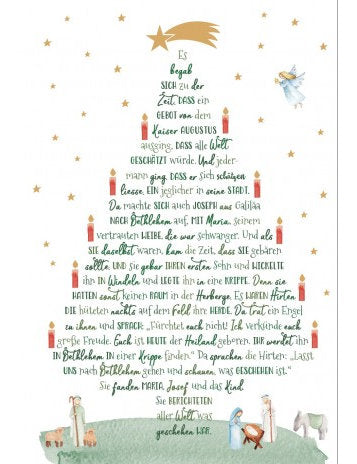 Es
begab
sich zu der
Zeit, dass ein
Gebot von dem
Kaiser Augustus
ausging, dass alle Welt
geschätzt würde. Und jeder-
mann ging, dass er sich schätzen
liesse, ein jeglicher in seine Stadt.
Da machte sich auch Joseph aus Galiläa
nach Bethlehem auf, mit Maria, seinem
vertrauten Weibe, die war schwanger. Und als
sie daselbst waren, kam die Zeit, dass sie gebären
sollte. Und sie gebar ihren ersten Sohn und wickelte
ihn in Windeln und legte ihn in eine Krippe. Denn sie
hatten sonst keinen Raum in der Herberge. Es waren Hirten,
die hüteten nachts auf dem Feld ihre Herde. Da trat ein Engel
zu ihnen und sprach: „Fürchtet euch nicht! Ich verkünde euch
große Freude. Euch ist heute der Heiland geboren. Ihr werdet ihn
in Bethlehem in einer Krippe finden.“ Da sprachen die Hirten: „Lasst
uns nach Bethlehem gehen und schauen, was geschehen ist.“
Sie fanden Maria, Josef und das Kind.
Sie berichteten
aller Welt, was
geschehen war.